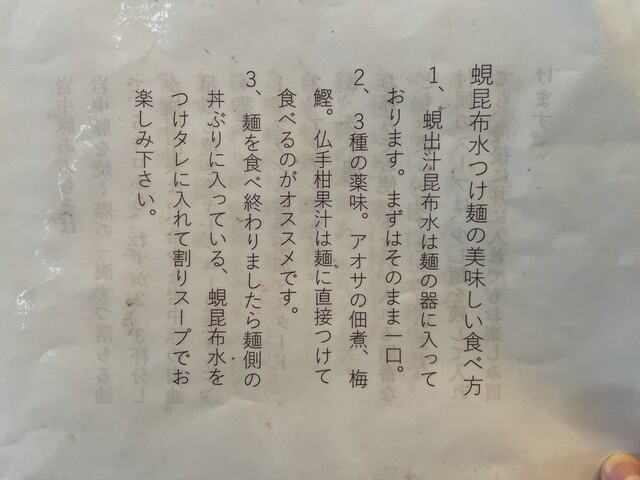 蜆昆布水つけ麺の美味しい食べ方
1、蜆出汁昆布水は麺の器に入って
おります。まずはそのまま一口。
2、3種の薬味。アオサの佃煮、梅
鰹。仏手柑果汁は麺に直接つけて
食べるのがオススメです。
3、麺を食べ終わりましたら麺側の
丼ぶりに入っている、蜆昆布水を
つけタレに入れて割りスープでお
楽しみ下さい。